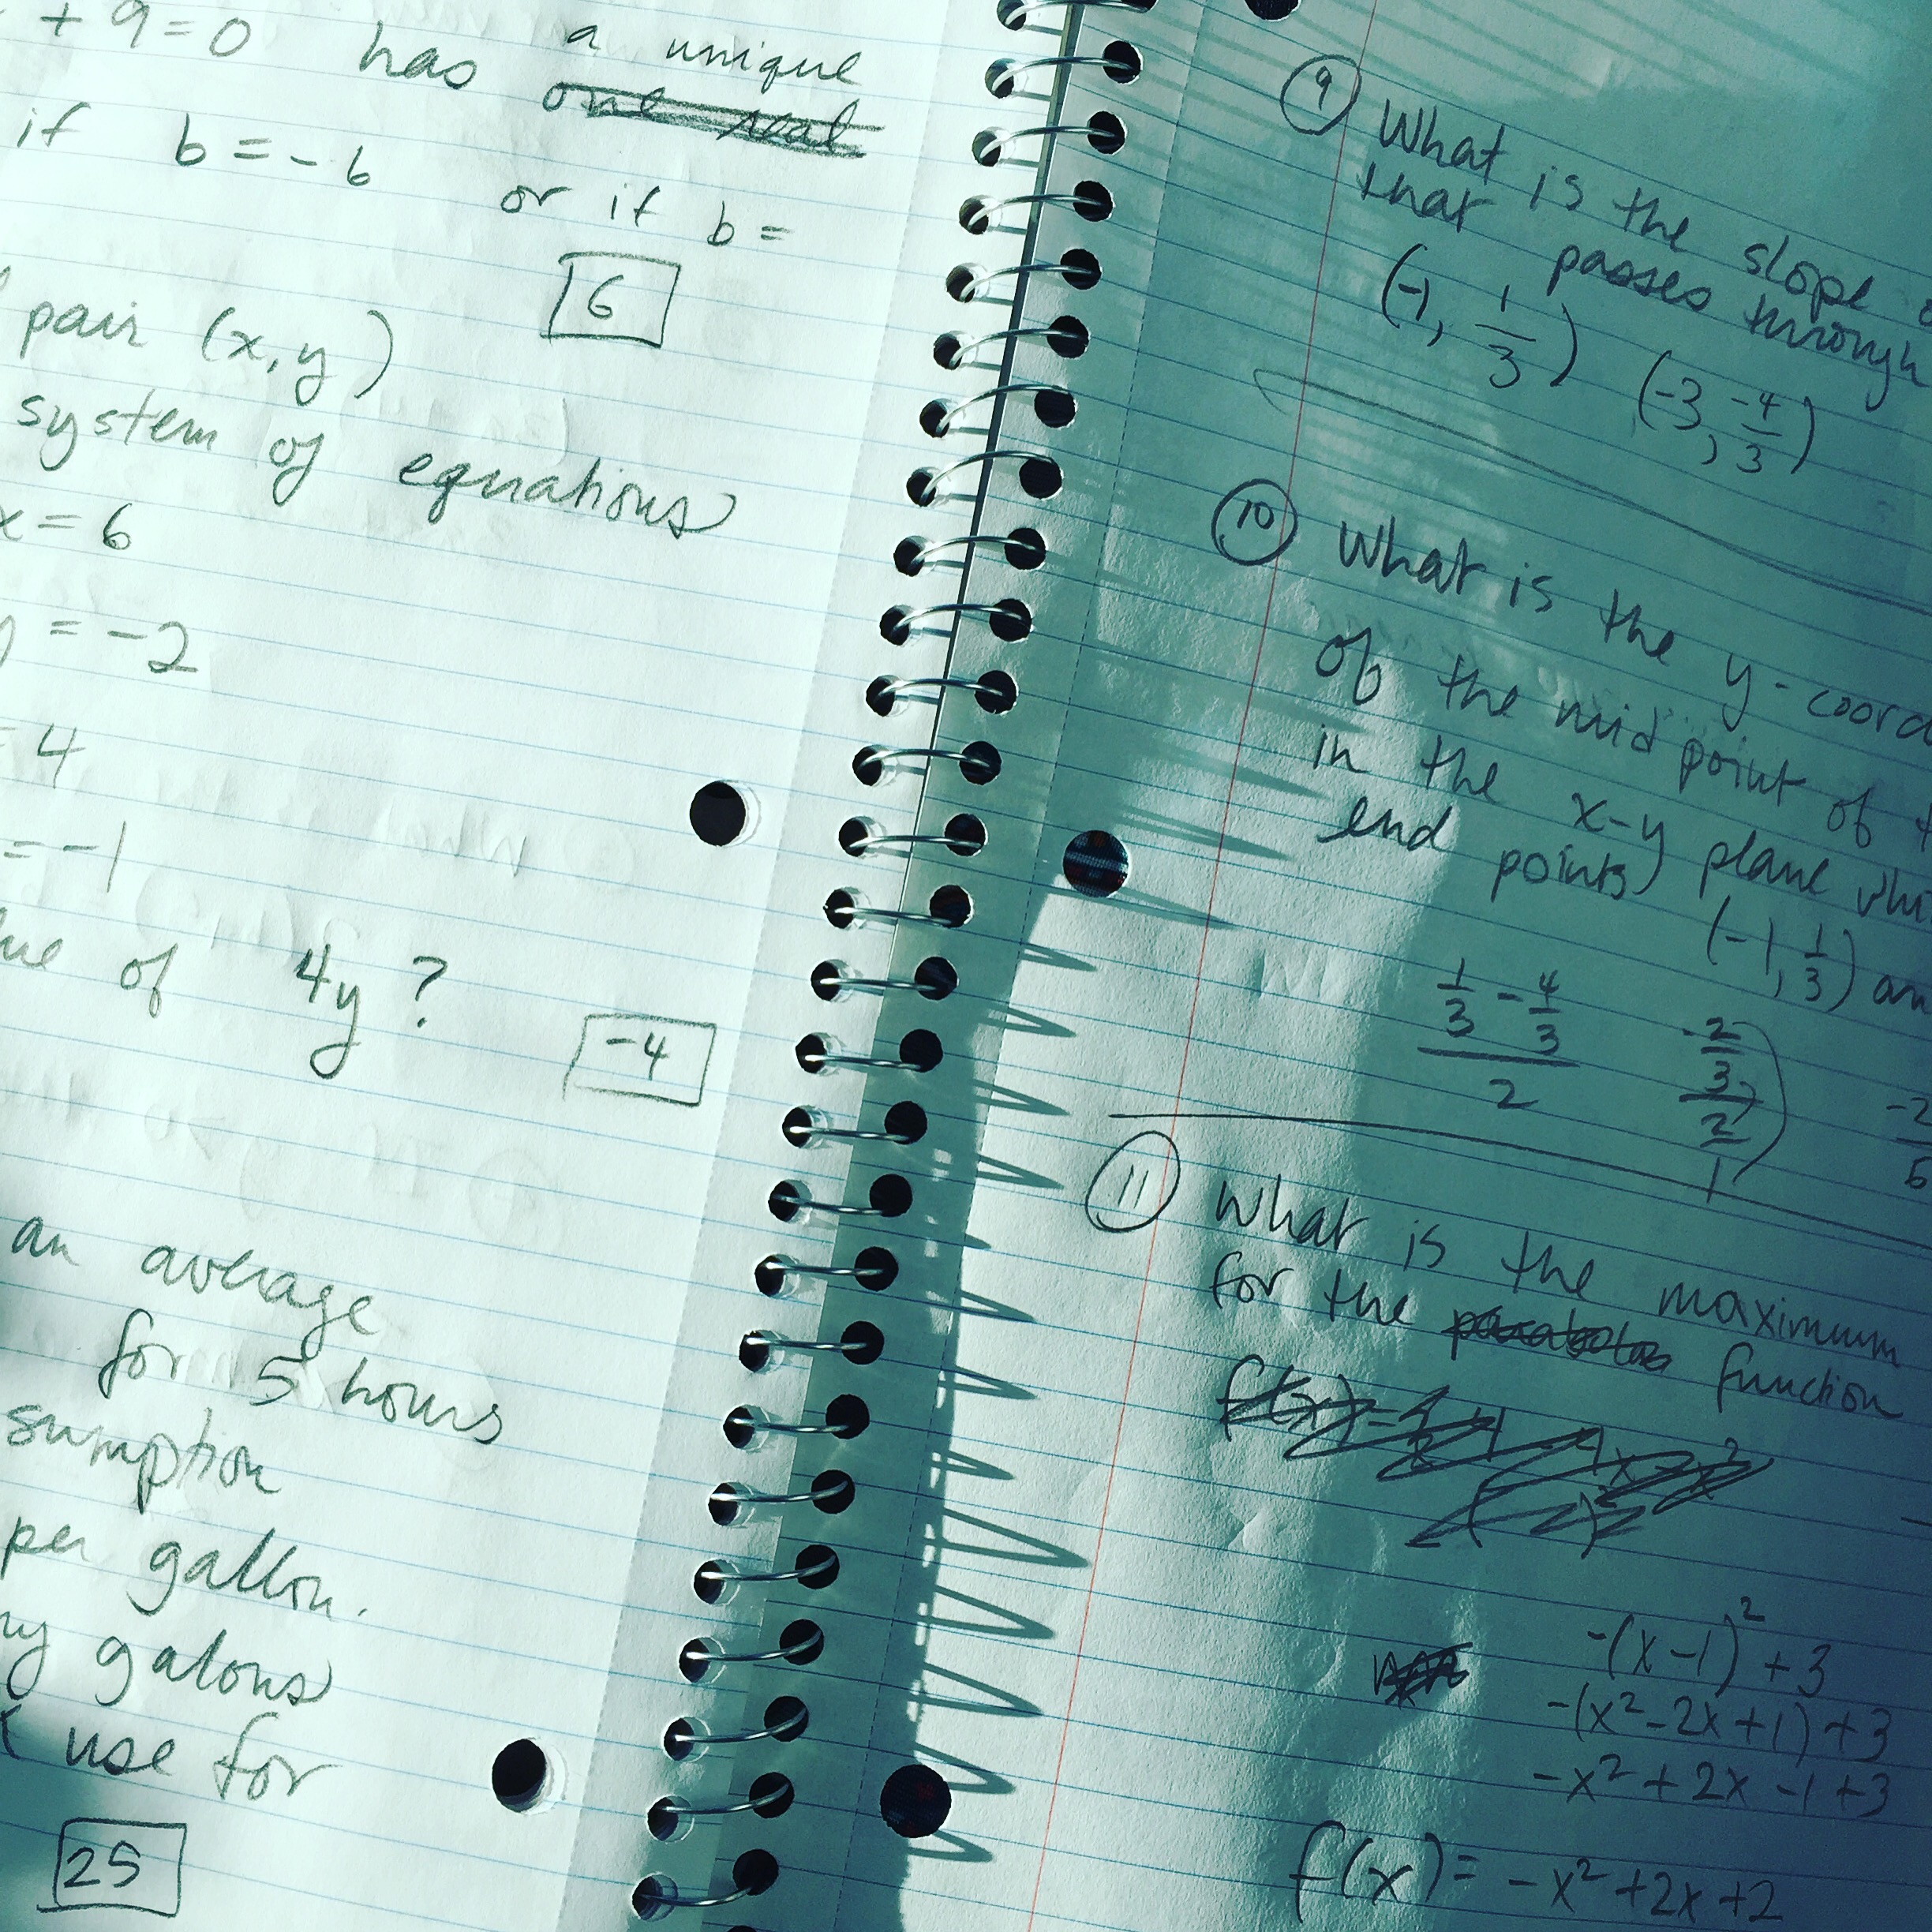 + 9 = 0 has a unique
if b = -6 or if b =
6
pair (x, y)
system of equations
x = 6
y = -2
= 4
= -1
of 4y?
-4
an average
for 5 hours
sumption
per gallon.
ny galons
use for
25
9 What is the slope
that passes through
(-1, 1/3) (-3, -4/3)
10 What is the y-coord
of the mid point of
in the x-y plane
end points (-1, 1/3) an
1/3 - 4/3
2
-2
3
2
1
-2
11 What is the maximum
for the function
-(x-1)² + 3
-(x² - 2x + 1) + 3
-x² + 2x - 1 + 3
f(x) = -x² + 2x + 2